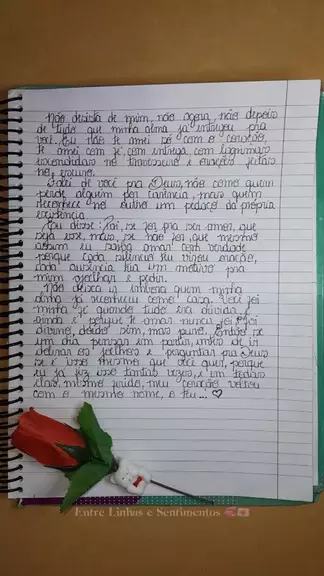 Não desista de mim, não agora, não depois
de tudo que minha alma já entregou pra
você. Eu não te amei só com o coração,
te amei com fé, com entrega, com lágrimas
escondidas no travesseiro e orações feitas
no escuro.
Falei de você pra Deus, não como quem
pede alguém por carência, mas quem
reconhece no outro um pedaço da própria
existência.
Eu disse: Pai, se for pra ser amor, que
seja esse, mas, se não for, que mesmo
assim eu saiba amar com verdade
porque cada silêncio teu virou oração,
cada ausência tua um motivo pra
mim ajoelhar e pedir.
Não deixa ir embora quem minha
alma já reconheceu como casa. Você foi
minha fé quando tudo era dúvida, e
ainda é porque te amar nunca foi
divino, doído sim, mas puro. Então se
um dia pensar em partir, antes de ir
dobrar os joelhos e perguntar pra Deus
se é isso mesmo que você quer, porque
eu já fiz isso tantas vezes, e em todas
elas, mesmo caído, meu coração voltou
com o mesmo nome, o teu... ♡
Entre Linhas e Sentimentos